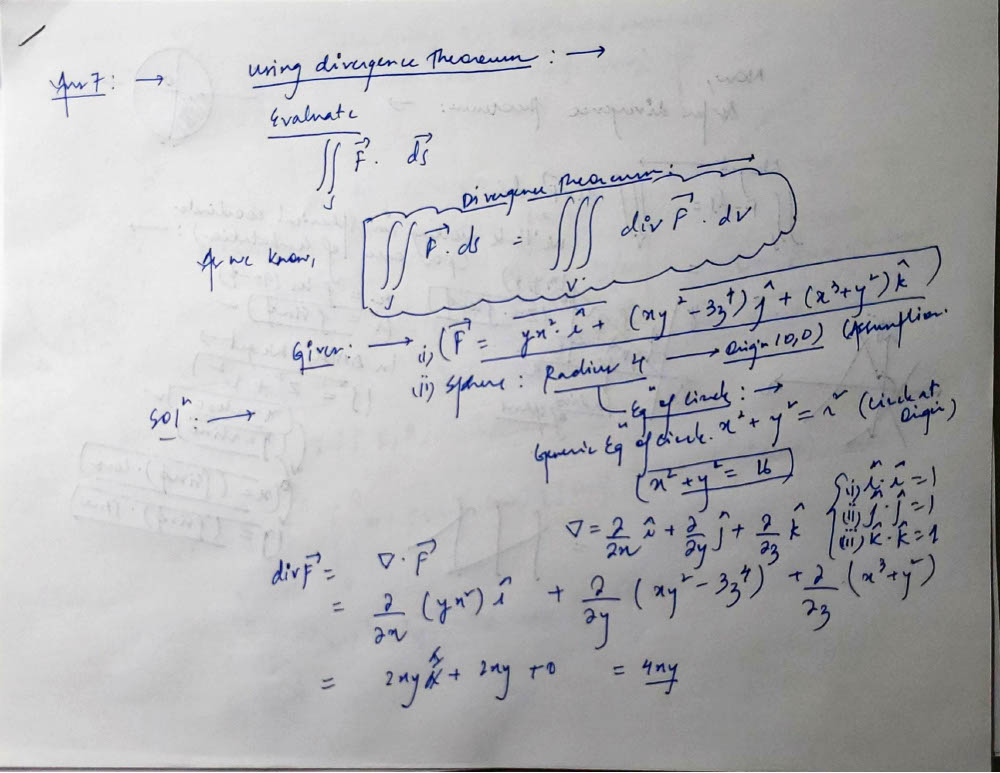 Ans 7: → Using divergence Theorem: →
Evaluate
∬_S F⃗ · ds⃗
Divergence Theorem: →
As we know, ∬_S F⃗ · ds = ∭_V div F⃗ · dv
Given: → (i) (F⃗ = yx² · î + (xy² - 3z⁴) ĵ + (x³ + y²) k̂)
(ii) Sphere: Radius 4 → Origin (0,0) (Assumption.
Eqⁿ of Circle: →
Solⁿ: →
Generic Eqⁿ of Circle. x² + y² = r² (Circle at Origin)
(x² + y² = 16)
{(i) î · î = 1
(ii) ĵ · ĵ = 1
(iii) k̂ · k̂ = 1
∇ = ∂/∂x î + ∂/∂y ĵ + ∂/∂z k̂
div F⃗ = ∇ · F⃗
= ∂/∂x (yx²) î + ∂/∂y (xy² - 3z⁴) + ∂/∂z (x³ + y²)
= 2xy + 2xy + 0 = 4xy